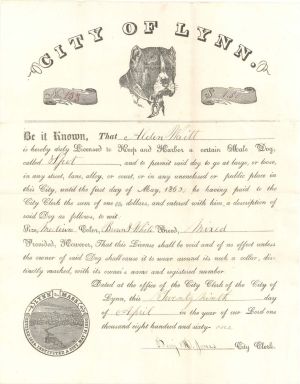 CITY OF LYNN.
Be it Known, That Alden Waitt
is hereby duly Licensed to Keep and Harbor a certain Male Dog,
called Spot, and to permit said dog to go at large, or loose,
in any street, lane, alley, or court, or in any unenclosed or public place in
this City, until the first day of May, 1862, he having paid to the
City Clerk the sum of one dollars, and entered with him, a description of
said Dog as follows, to wit:
Size, medium Color, Brown & White Breed, Mixed
Provided, However, That this License shall be void and of no effect unless
the owner of said Dog shall cause it to wear around its neck a collar, dis-
tinctly marked, with its owner's name and registered number.
Dated at the office of the City Clerk of the City of
Lynn, this Twenty ninth day
of April in the year of our Lord one
thousand eight hundred and sixty-one
City Clerk.
LYNN MASS.